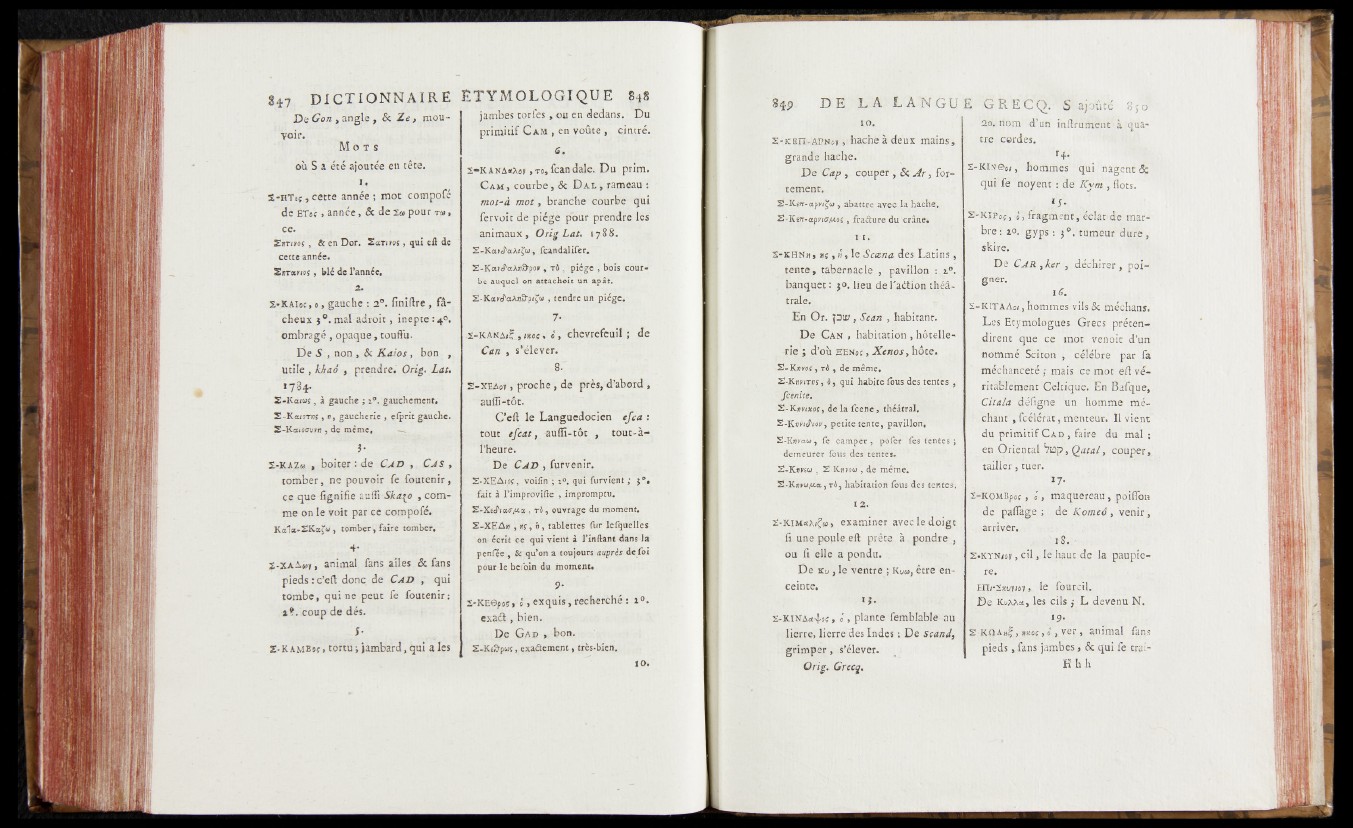 847 DICTIONNAIRE ÉTYMOLOGIQUE 848
De Gon, angle, & Ze, mou-
voir.
MOTS
où S a été ajoutée en tête.
1.
Σ-ΗΤες, cette année; mot compoſé
de ΕΤος, année, & de Σω pour τω,
ce.
Σητινος, & en Dor. Σατινος, qui eſt de
cette année.
Σητανιος, blé de l'année.
2.
Σ-ΚΑΙος, ο, gauche : 2°. ſiniſtre, fâ-
cheux 3°. mal adroit, inepte : 4°.
ombragé, opaque, touffu.
De S, non, & Kaios, bon,
utile, khaó, prendre. Orig. Lat.
1784.
Σ-Καιως, à gauche; 2°. gauchement.
Σ-Καιοτης, ο, gaucherie, eſprit gauche.
Σ-Καιοσυνη, de même.
3.
Σ-ΚΑΖω, boiter : de CAD, CAS,
tomber, ne pouvoir ſe ſoutenir,
ce que ſignifie auſſi Skazo, com-
me on le voit par ce compoſé.
Καία-ΣΚαζω, tomber, faire tomber.
4.
Σ-ΧΑΔων, animal ſans aîles & ſans
pieds : c'eſt donc de CAD, qui
tombe, qui ne peut ſe ſoutenir :
2°. coup de dés.
5.
Σ-ΚΑΜΒος, tortu; jambard, qui a les
jambes torſes, ou en dedans. Du
primitif CAM, en voûte, cintré.
6.
Σ-ΚΑΝΔαλον, το, ſcandale. Du prim.
CAM, courbe, & DAL, rameau :
mot-à mot, branche courbe qui
ſervoit de piége pour prendre les
animaux, Orig Lat. 1788.
Σ-Κανδαλιζω, ſcandaliſer.
Σ-Κανδαληθρον, τὸ, piége, bois cour-
be auquel on attachoit un apât.
Σ-Κανδαληθριζω, tendre un piége.
7.
Σ-ΚΑΝΔιξ, ικος, ὁ, chevrefeuil; de
Can, s'élever.
8.
Σ-ΧΕΔον, proche, de près, d'abord,
auſſi-tôt.
C'eſt le Languedocien eſca :
tout eſcat, auſſi-tôt, tout-à-
l'heure.
De CAD, ſurvenir.
Σ-ΧΕΔιος, voiſin; 2°. qui ſurvient; 3°.
fait à l'improviſte, impromptu.
Σ-Χεδιασμα, τὸ, ouvrage du moment.
Σ-ΧΕΔη, ης, ἡ, tablettes ſur leſquelles
on écrit ce qui vient à l'inſtant dans la
penſée, & qu'on a toujours auprès de ſoi
pour le beſoin du moment.
9.
Σ-ΚΕΘρος, ὁ, exquis, recherché : 2°.
exact, bien.
De GAD, bon.
Σ-Κεθρως, exactement, très-bien.
10.
849 DE LA LANGUE GRECQ. S ajoûté 850
10.
Σ-ΚΕΠ-ΑΡΝος, hache à deux mains,
grande hache.
De Cap, couper, & Ar, for-
tement.
Σ-Κεπ-αρνιζω, abattre avec la hache.
Σ-Κεπ-αρνισμος, fracture du crâne.
11.
Σ-ΚΗΝη, ης, ἡ, le Scæna des Latins,
tente, tabernacle, pavillon : 2°.
banquet : 3°. lieu de l'action théâ-
trale.
En Or. שכן, Scan, habitant.
De CAN, habitation, hôtelle-
rie; d'où ΞΕΝος, Xenos, hôte.
Σ-Κηνος, τὸ, de même.
Σ-Κηνιτης, ὁ, qui habite ſous des tentes,
ſcenite.
Σ-Κηνικος, de la ſcene, théâtral.
Σ-Κηνιδιον, petite tente, pavillon.
Σ-Κηναω, ſe camper, poſer ſes tentes;
demeurer ſous des tentes.
Σ-Κηνεω, Σ Κηνοω, de même.
Σ-Κηνωμα, τὸ, habitation ſous des tentes.
12.
Σ-ΚΙΜαλιζω, examiner avec le doigt
ſi une poule eſt prête à pondre,
ou ſi elle a pondu.
De κυ, le ventre; Κυω, être en-
ceinte.
13.
Σ-ΚΙΝΔαψος, ὁ, plante ſemblable au
lierre, lierre des Indes : De scand,
grimper, s'élever.
Orig. Grecq.
20. nom d'un inſtrument à qua-
tre cordes.
14.
Σ-ΚΙΝΘοι, hommes qui nagent &
qui ſe noyent : de Kym, flots.
15.
Σ-ΚΙΡος, ὁ, fragment, éclat de mar-
bre : 2°. gyps : 3°. tumeur dure,
skire.
De CAR, ker, déchirer, poi-
gner.
16.
Σ-ΚΙΤΑΛοι, hommes vils & méchans.
Les Etymologues Grecs préten-
dirent que ce mot venoit d'un
nommé Sciton, célébre par ſa
méchanceté; mais ce mot eſt vé-
ritablement Celtique. En Baſque,
Citala déſigne un homme mé-
chant, ſcélérat, menteur. Il vient
du primitif CAD, faire du mal;
en Oriental קטל, Qatal, couper,
tailler, tuer.
17.
Σ-ΚΟΜΒρος, ὁ, maquereau, poiſſon
de paſſage; de Komeó, venir,
arriver.
18.
Σ-ΚΥΝιον, cil, le haut de la paupie-
re.
ΕΠι-Σκυνιον, le ſourcil.
De Κυλλα, les cils; L devenu N.
19.
Σ ΚΩΛηξ, ηκος, ὁ, ver, animal ſans
pieds, ſans jambes, & qui ſe traî-
Hhh